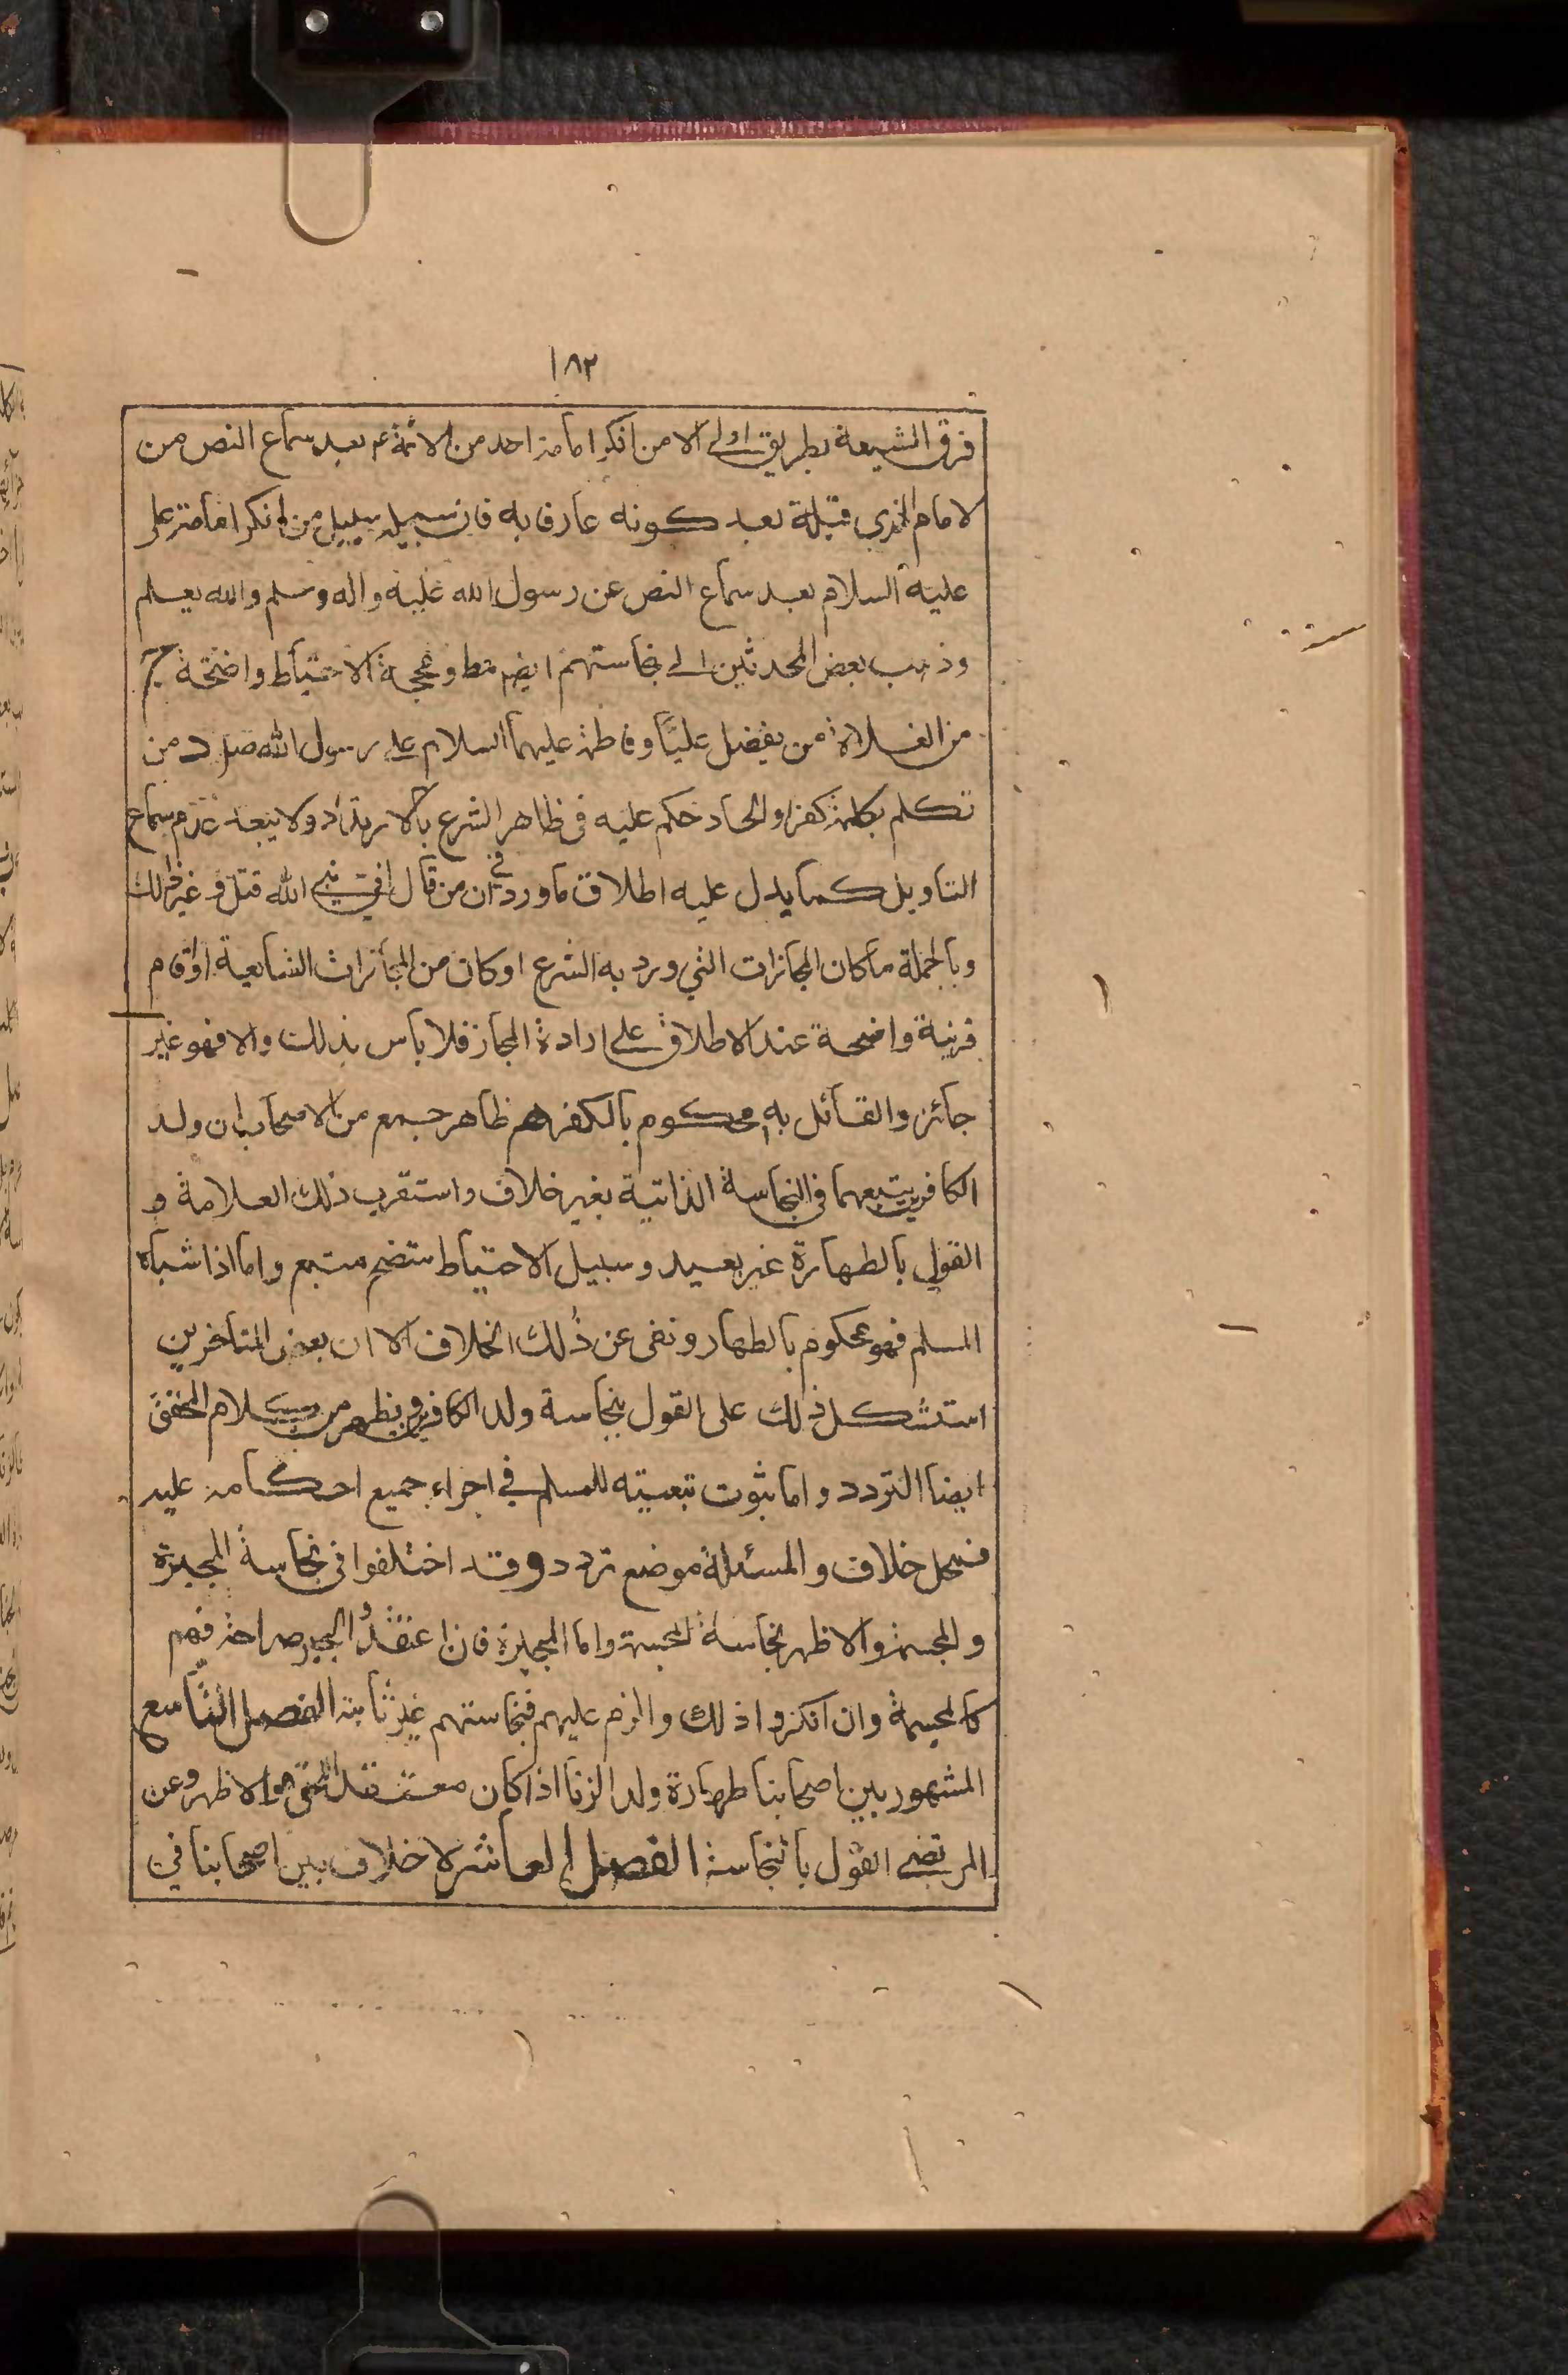 ١٨٢
فرق الشيعة بطريق اولى الا من انكر امامة احد من الائمة ع بعد سماع النص من
الامام الذي قبله بعد كونه عارفا به فان سبيله سبيل من انكر امامة علي
عليه السلام بعد سماع النص عن رسول الله عليه واله وسلم والله يعلم
وذهب بعض المحدثين الى نجاستهم ايضم مط ومحجة الاحتياط واضحة
من الغلاة من يفضل عليا وفاطمة عليهما السلام على رسول الله ص ومن
تكلم بكلمة كفر او الحاد حكم عليه في ظاهر الشرع بالارتداد ولا يبعد عدم سماع
التاويل كما يدل عليه اطلاق ما ورد في ان من قال اني نبي الله قتل وغير ذلك
وبالجملة ما كان المجازات التي ورد به الشرع او كان من المجازات الشايعة او اقام
قرينة واضحة عند الاطلاق على ارادة المجاز فلا باس بذلك والا فهو غير
جائز والقائل به محكوم بالكفر هم ظاهر جمع من الاصحاب ان ولد
الكافرين يتبعهما في النجاسة الذاتية بغير خلاف واستقرب ذلك العلامة و
القول بالطهارة غير بعيد وسبيل الاحتياط متضح متبع واما اذا شباه
المسلم فهو محكوم بالطهار ونفى عن ذلك الخلاف الا ان بعض المتاخرين
استشكل ذلك على القول بنجاسة ولد الكافرين ويظهر من كلام المحقق
ايضا التردد واما ثبوت تبعيته للمسلم في اجراء جميع احكامه عليه
فمحل خلاف والمسئلة موضع تردد وقد اختلفوا في نجاسة المجبرة
والمجسمة والاظهر نجاسة المجسمة واما المجبرة فان اعتقدوا الجبر صراحة فهم
كالمجسمة وان انكروا ذلك والزم عليهم فنجاستهم غير ثابتة الفصل التاسع
المشهور بين اصحابنا طهارة ولد الزنا اذا كان معتقد الحق هو الاظهر وعن
المرتضى القول بالنجاسة الفصل العاشر لا خلاف بين اصحابنا في